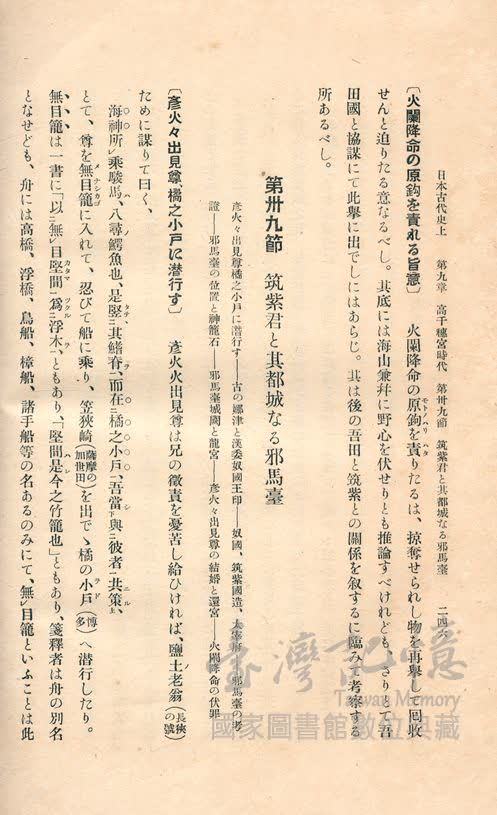 日本古代史上　第九章　高千穗宮時代　第卅九節　筑紫君と其都城なる邪馬臺　二四六
〔火闌降命の原鈎を責れる旨意〕　火闌降命の原鈎を責りたるは、掠奪せられし物を再擧して回收
せんと迫りたる意なるべし。其底には海山兼幷に野心を伏せりとも推論すべけれども、さりとて吾
田國と協謀にて此擧に出でしにはあらじ。其は後の吾田と筑紫との關係を叙するに臨みて考察する
所あるべし。
第卅九節　筑紫君と其都城なる邪馬臺
彦火々出見尊橘之小戸に潜行す——古の娜津と漢委奴國王印——奴國、筑紫國造、太宰府——邪馬臺の考
證——邪馬臺の位置と神籠石——邪馬臺城闕と龍宮——彦火々出見尊の結婚と還宮——火闌降命の伏罪
〔彦火々出見尊、橘之小戸に潜行す〕　彦火火出見尊は兄の徴責を憂苦し給ひければ、鹽土老翁（長狹の號）
ために謀りて曰く、
海神所レ乘駿馬、八尋鰐魚也、是竪二其鰭脊一、而在二橘之小戸一、吾當下與二彼者一共策上、
とて、尊を無目籠に入れて、忍びて船に乘り、笠狹崎（薩摩の加世田）を出でゝ橘の小戸（博多）へ潜行したり。
無目籠は一書に「以二無レ目堅間一爲二浮木一」ともあり、「堅間是今之竹籠也」ともあり、箋釋者は舟の別名
となせども、舟には高橋、浮橋、鳥船、樟船、諸手船等の名あるのみにて、無レ目籠といふことは此
臺灣記憶
Taiwan Memory
國家圖書館數位典藏